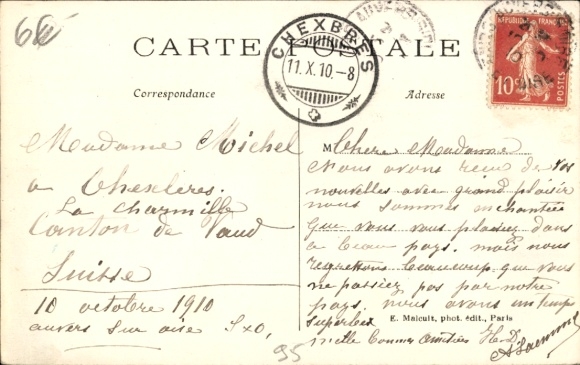 66
CARTE POSTALE
CHEXBRES
11.X.10.-8
RÉPUBLIQUE FRANÇAISE
10c
POSTES
Correspondance
Adresse
Madame Michel
a Chexbres.
La Charmille
Canton de Vaud
Suisse
10 octobre 1910
auvers sur oise S&O,
95
M Chere Madame
Nous avons recu de vos
nouvelles avec grand plaisir
nous sommes enchantées
que vous vous plaisiez dans
ce beau pays. mais nous
regrettons beaucoup que vous
ne passiez pas par notre
pays. nous avons un temps
superbe
E. Malcuit, phot. édit., Paris
mille bonnes Amitiés H. D.